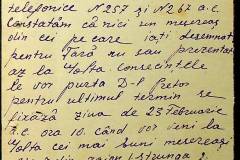 telefonice N 257 și N 267 a.c.
Constatăm că nici un meseriaș
din cei pe care i-ați desemnat
pentru Țară nu sau prezentat
az la Iofta. consecințele
le vor purta D-l Greior
pentru ultimul termin se
fixază ziua de 25 Februarie
a.c. ora 10. când vor veni la
Iofta cei mai buni meseriași